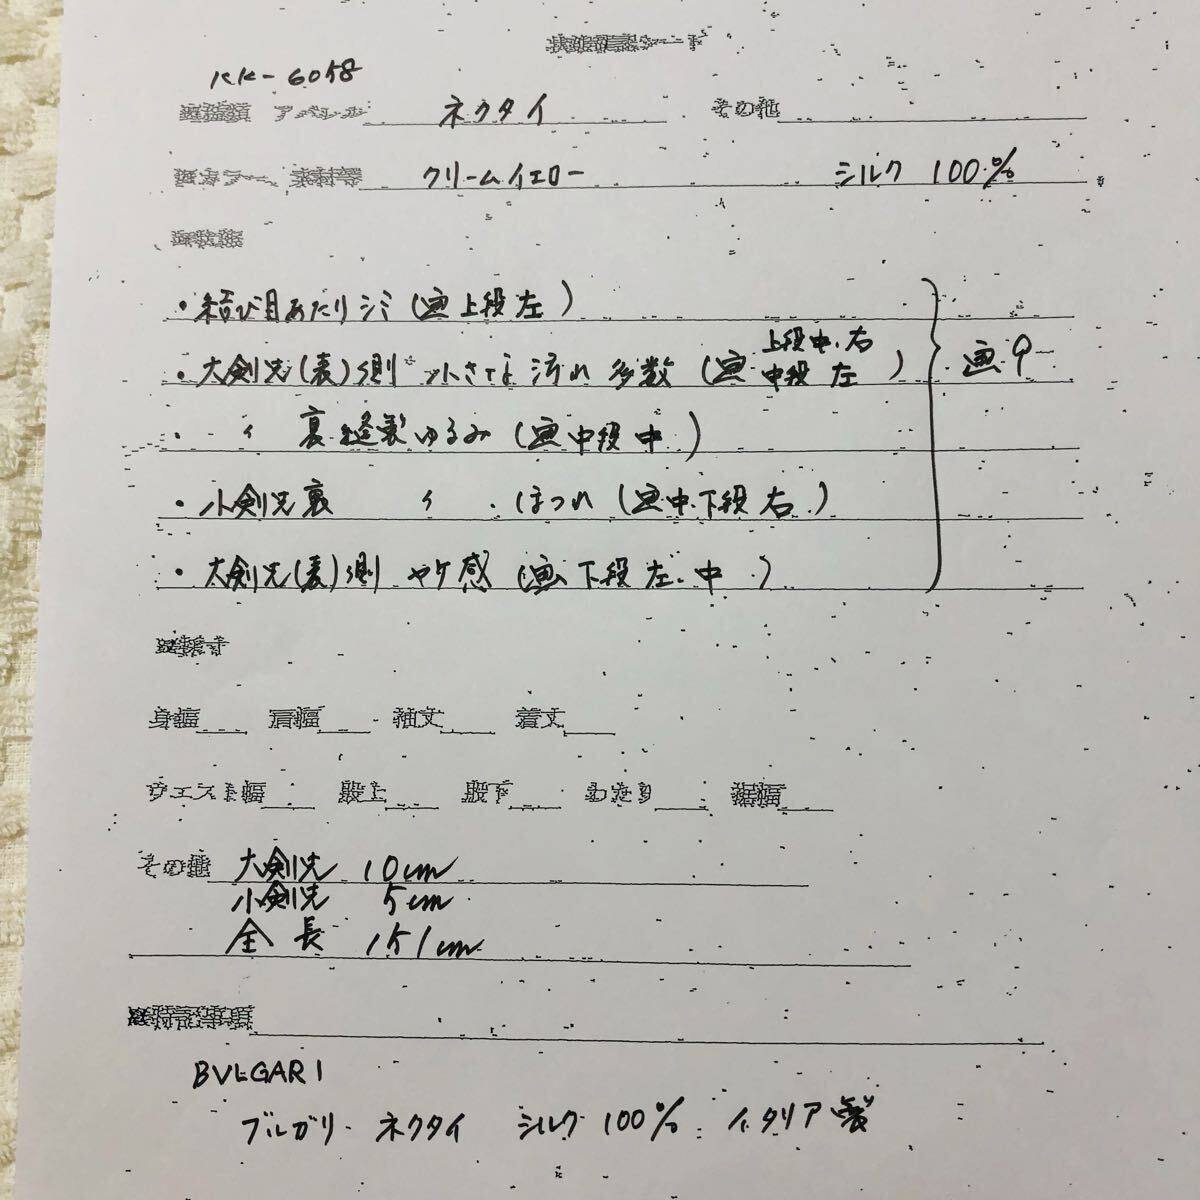 状態確認シート
KK-6058
アパレル ネクタイ その他
素材等 クリームイエロー シルク 100%
・結び目あたりシミ(画上段左)
・大剣先(表)側 小さな汚れ 多数(画 上段中、右 中段 左)
〃 裏 縫製ゆるみ(画中段中)
・小剣先裏 〃 ・ほつれ(画中・下段右)
・大剣先(表)側 ヤケ感(画 下段左・中)
画9
身幅 肩幅 袖丈 着丈
ウエスト幅 股上 股下 わたり 裾幅
その他 大剣先 10cm
小剣先 5cm
全長 151cm
特記事項
BVLGARI
ブルガリ ネクタイ シルク 100% イタリア製